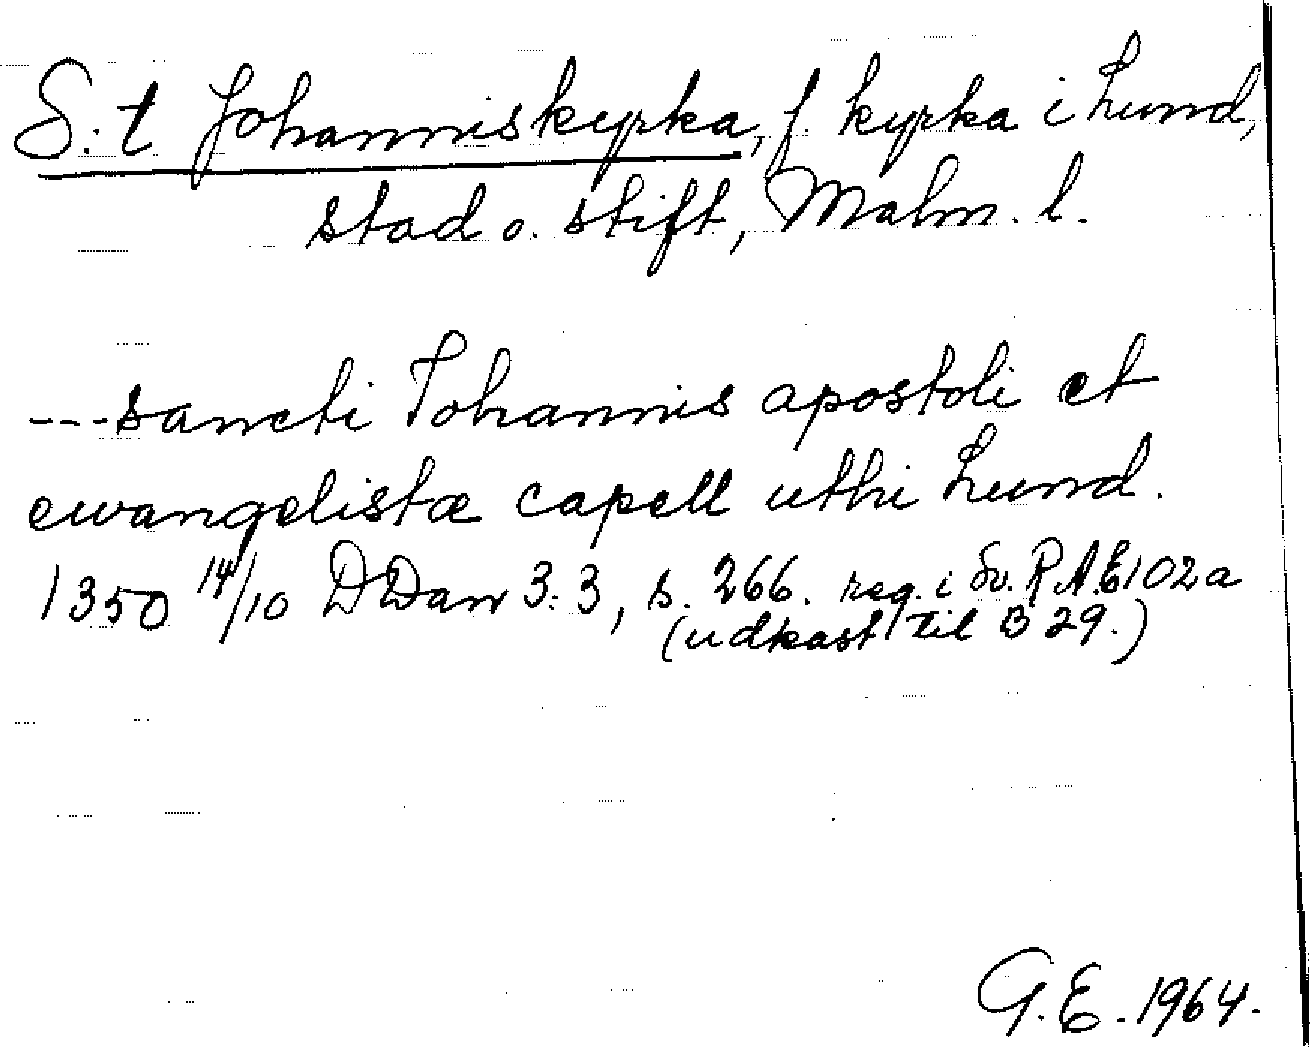 S:t Johanniskyrka, f. kyrka i Lund,
stad o. stift, Malm. l.
---sancti Johannis apostoli et
ewangelistæ capell uthi Lund.
1350 14/10 DDan 3:3, s. 266. reg. i Sv. R.A. E102a
(udkast til B 29.)
G.E. 1964.